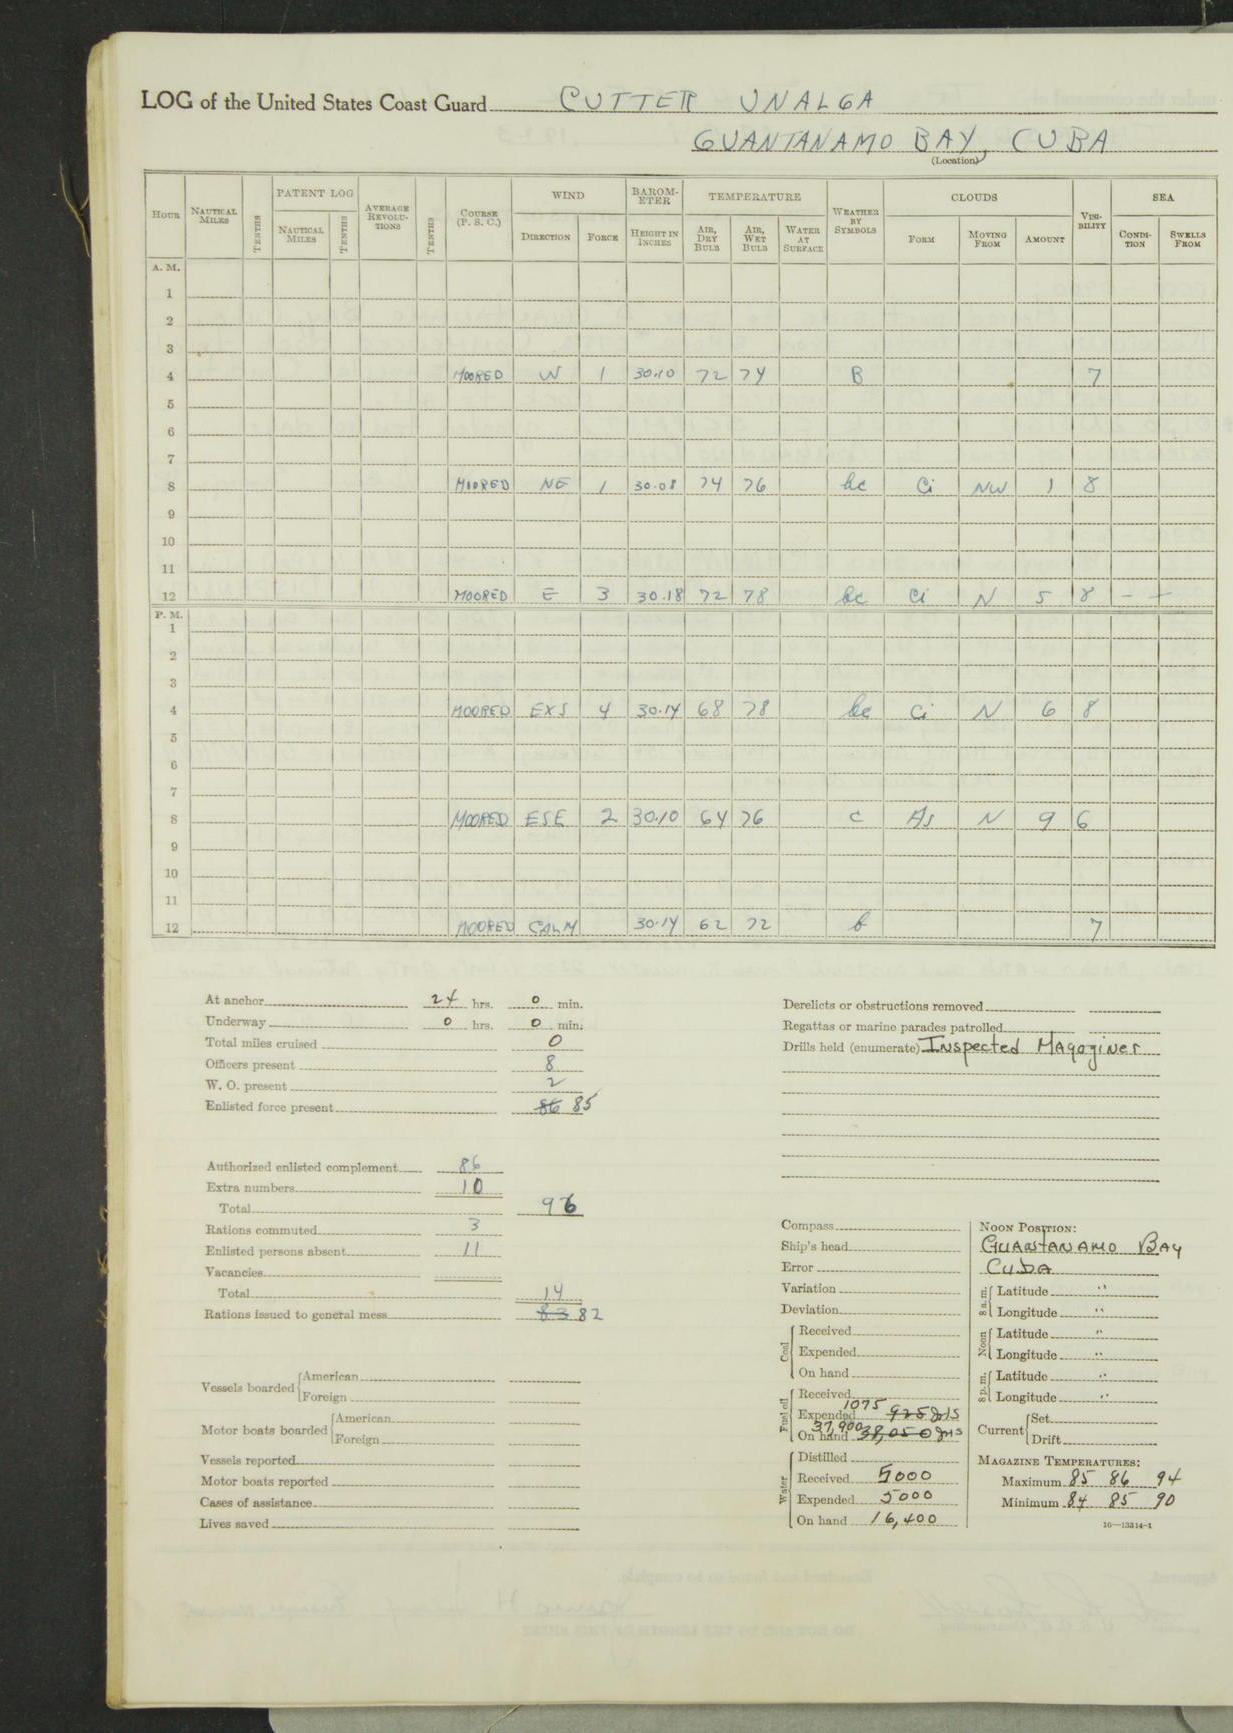 LOG of the United States Coast Guard CUTTER UNALGA
GUANTANAMO BAY, CUBA
(Location)
HOUR NAUTICAL MILES TENTHS PATENT LOG NAUTICAL MILES TENTHS AVERAGE REVOLU-TIONS TENTHS COURSE (P. S. C.) WIND DIRECTION FORCE BAROM-ETER HEIGHT IN INCHES TEMPERATURE AIR, DRY BULB AIR, WET BULB WATER AT SURFACE WEATHER BY SYMBOLS CLOUDS FORM MOVING FROM AMOUNT VISI-BILITY SEA CONDI-TION SWELLS FROM
A. M.
1
2
3
4 MOORED W 1 30.10 72 74 B 7
5
6
7
8 MOORED NE 1 30.08 74 76 bc Ci NW 1 8
9
10
11
12 MOORED E 3 30.18 72 78 bc Ci N 5 8 - -
P. M.
1
2
3
4 MOORED EXS 4 30.14 68 78 bc Ci N 6 8
5
6
7
8 MOORED ESE 2 30.10 64 76 c As N 9 6
9
10
11
12 MOORED CALM 30.14 62 72 b 7
At anchor 24 hrs. 0 min.
Underway 0 hrs. 0 min.
Total miles cruised 0
Officers present 8
W. O. present 2
Enlisted force present 86 85
Authorized enlisted complement 86
Extra numbers 10
Total 96
Rations commuted 3
Enlisted persons absent 11
Vacancies
Total 14
Rations issued to general mess 83 82
Vessels boarded American
Foreign
Motor boats boarded American
Foreign
Vessels reported
Motor boats reported
Cases of assistance
Lives saved
Derelicts or obstructions removed
Regattas or marine parades patrolled
Drills held (enumerate) Inspected Magazines
Compass
Ship's head
Error
Variation
Deviation
Coal Received
Expended
On hand
Fuel oil Received
Expended 1075 925 gls
On hand 37,900 38,050 gns
Water Distilled
Received 5000
Expended 5000
On hand 16,400
NOON POSITION:
GUANTANAMO BAY
CUBA
8 a. m. Latitude "
Longitude "
Noon Latitude "
Longitude "
8 p. m. Latitude "
Longitude "
Current Set
Drift
MAGAZINE TEMPERATURES:
Maximum 85 86 94
Minimum 84 85 90
16—13314-1